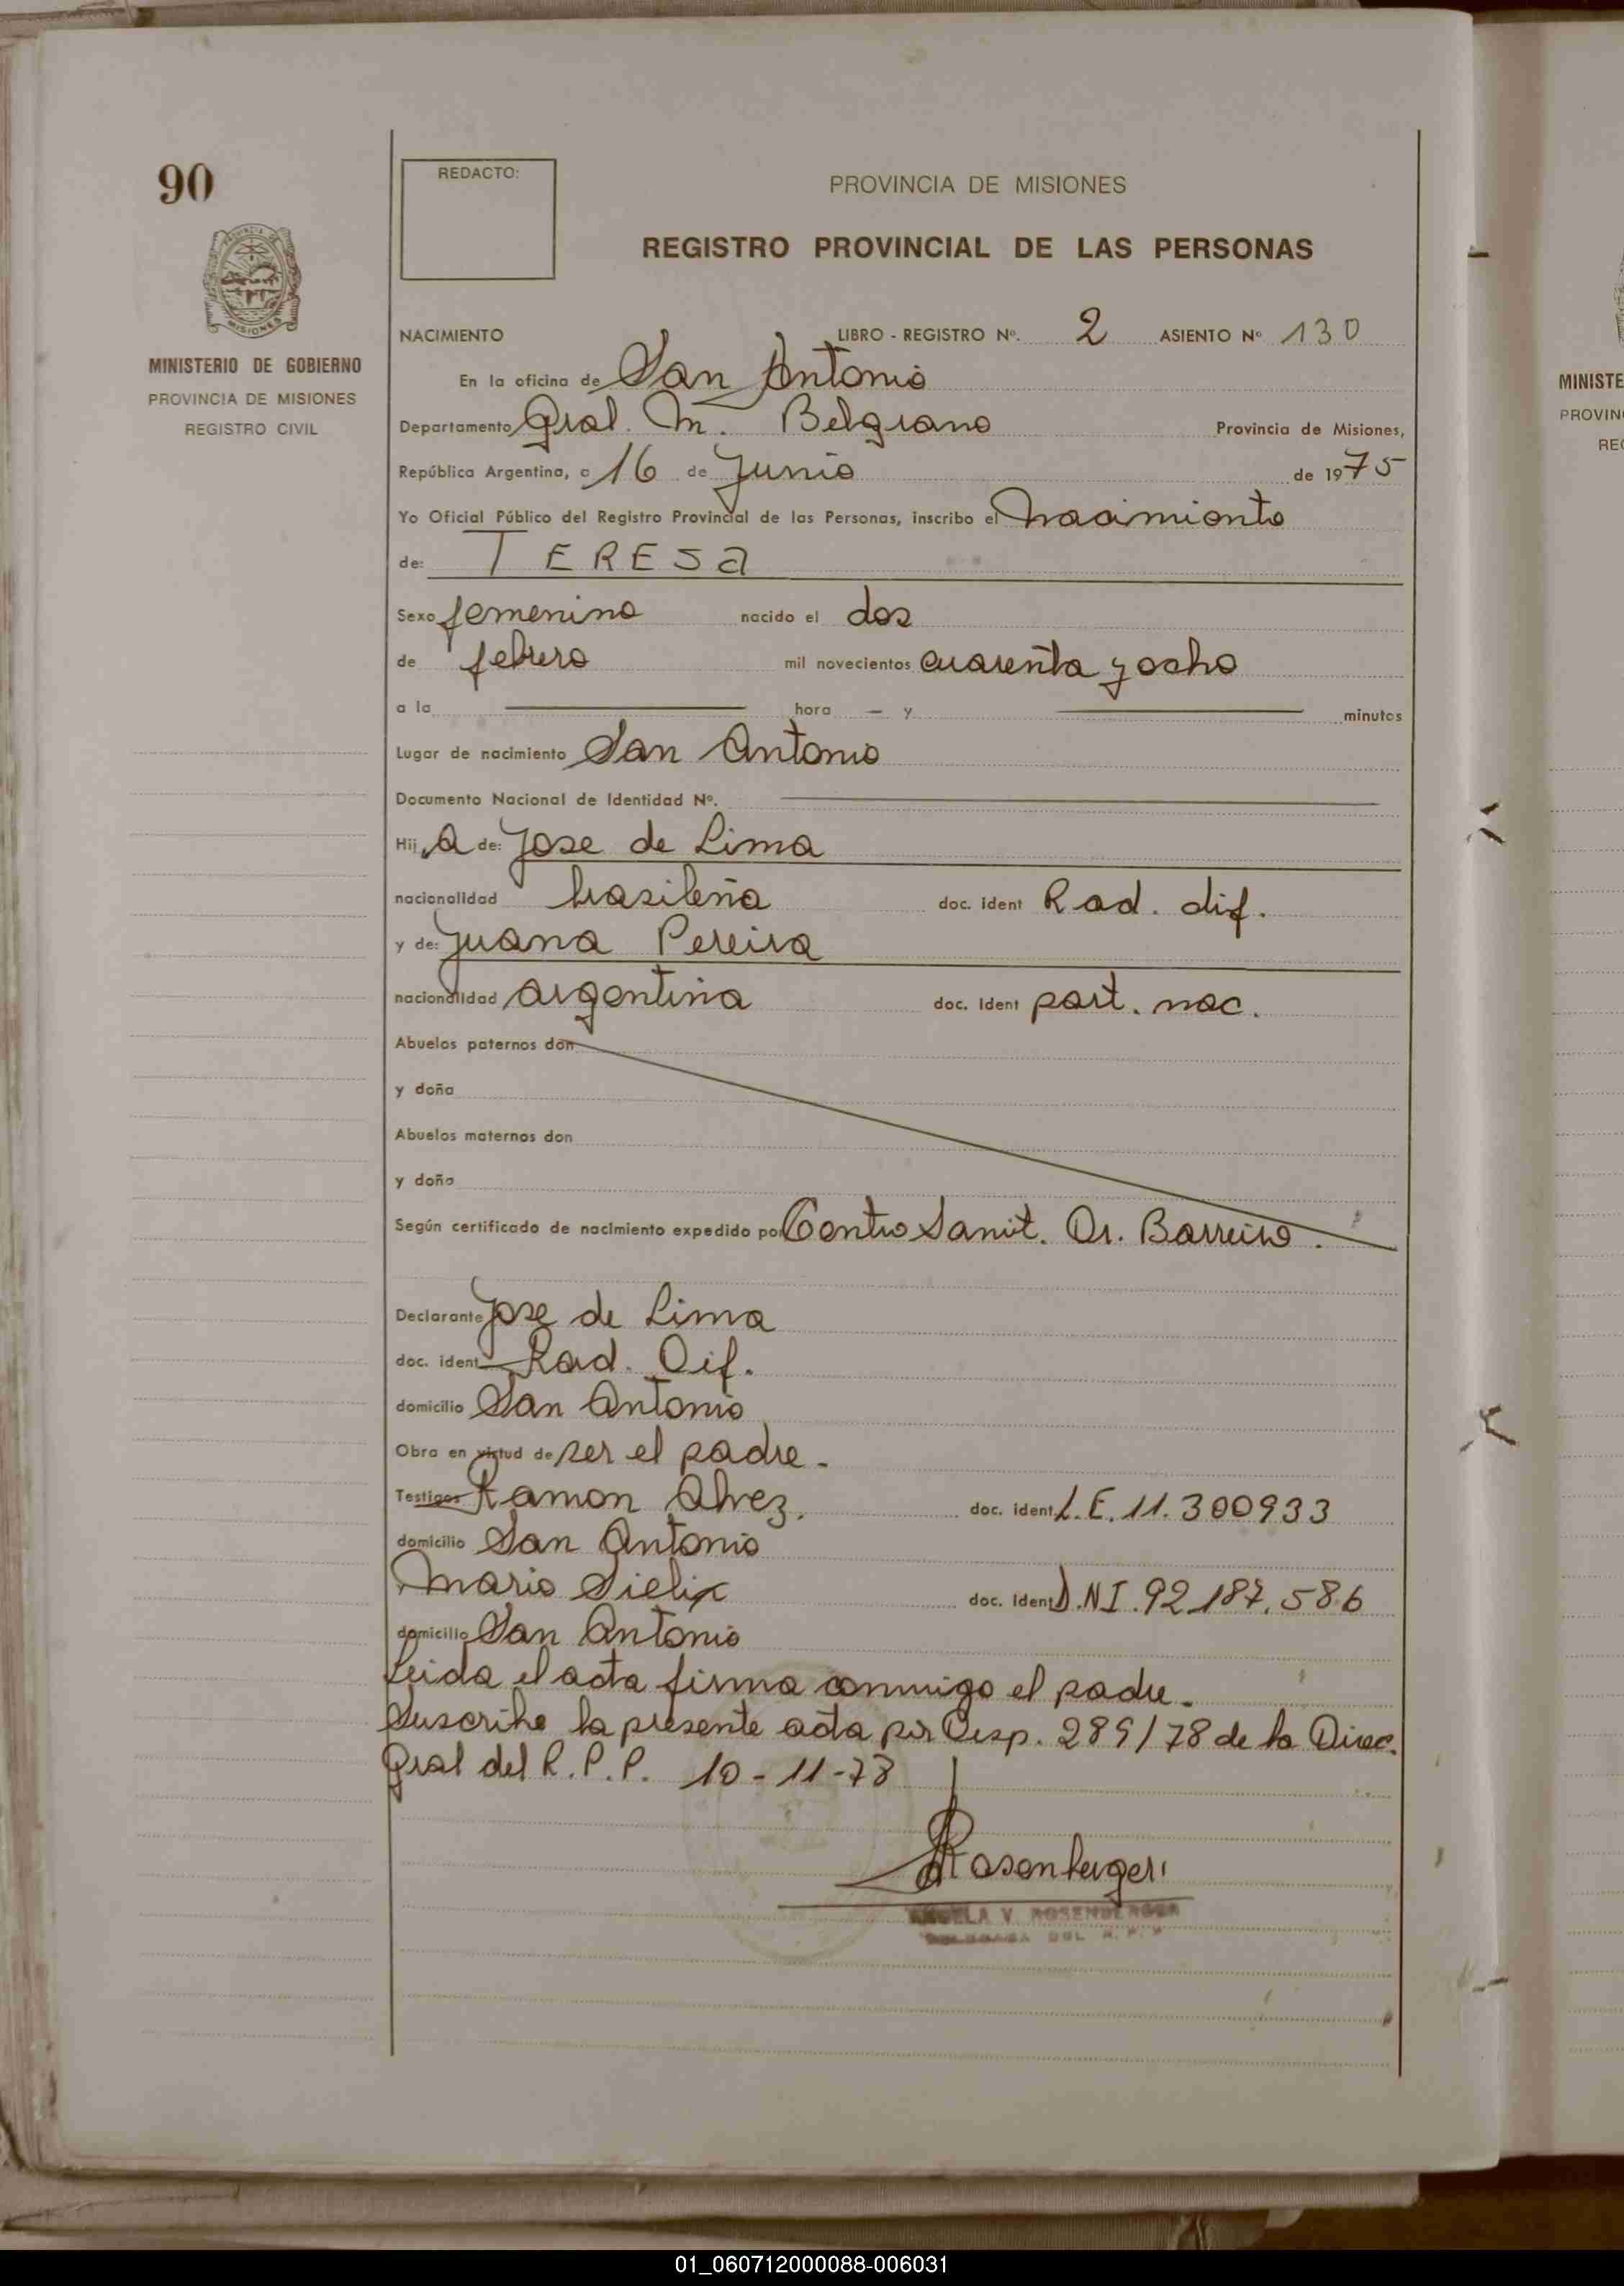 90
REDACTO:
PROVINCIA DE MISIONES
REGISTRO PROVINCIAL DE LAS PERSONAS
MINISTERIO DE GOBIERNO
PROVINCIA DE MISIONES
REGISTRO CIVIL
NACIMIENTO LIBRO - REGISTRO Nº. 2 ASIENTO Nº 130
En la oficina de San Antonio
Departamento Gral. M. Belgrano Provincia de Misiones,
República Argentina, a 16 de Junio de 1975
Yo Oficial Público del Registro Provincial de las Personas, inscribo el nacimiento
de: TERESa
Sexo femenino nacido el dos
de febrero mil novecientos cuarenta y ocho
a la — hora — y — minutos
Lugar de nacimiento San Antonio
Documento Nacional de Identidad Nº. —
Hij a de: Jose de Lima
nacionalidad brasileña doc. ident Rad. dif.
y de: Juana Pereira
nacionalidad argentina doc. Ident part. nac.
Abuelos paternos don
y doña
Abuelos maternos don
y doña
Según certificado de nacimiento expedido por Centro Sanit. Dr. Barreiro.
Declarante Jose de Lima
doc. ident Rad. Dif.
domicilio San Antonio
Obra en virtud de ser el padre.
Testigos Ramon Alvez. doc. ident L.E. 11.300933
domicilio San Antonio
Mario doc. Ident D.N.I. 92.187.586
domicilio San Antonio
Leida el acta firma conmigo el padre.
Suscribo la presente acta por Disp. 289/78 de la Direc.
Gral del R.P.P. 10-11-78
Rosenberger
V. ROSENBERGER
DEL R.P.P
MINISTE
PROVIN
RE
01_060712000088-006031